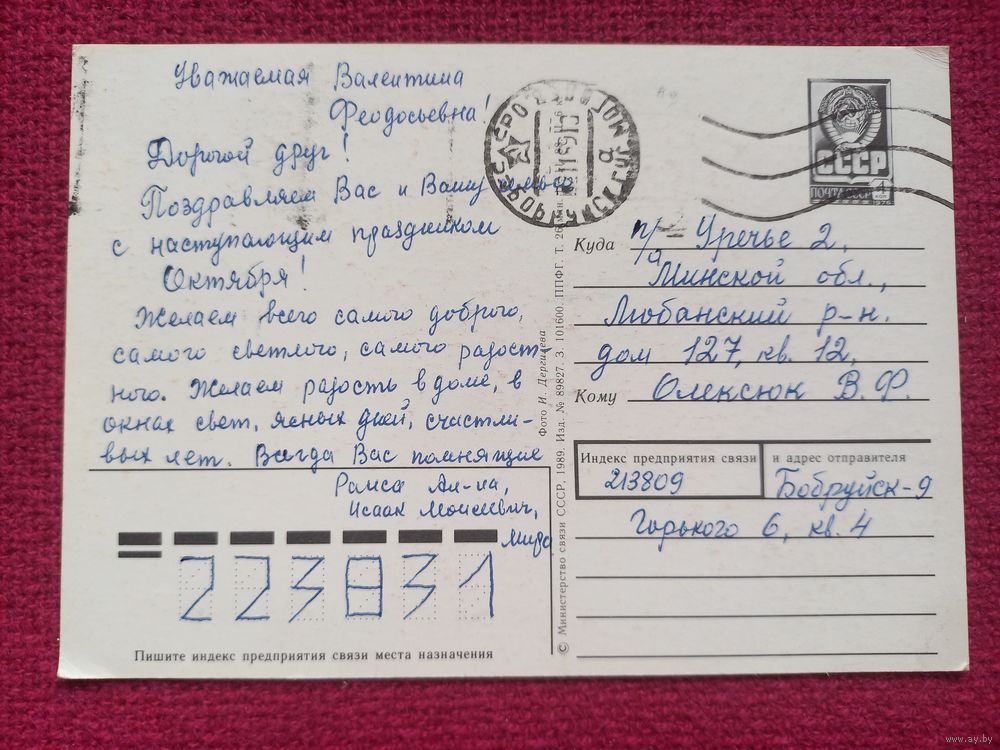 Уважаемая Валентина
Феодосьевна!
Дорогой друг!
Поздравляем Вас и Вашу семью
с наступающим праздником
Октября!
Желаем всего самого доброго,
самого светлого, самого радост-
ного. Желаем радость в доме, в
окнах свет, ясных дней, счастли-
вых лет. Всегда Вас помнящие
Раиса Ал-на,
Исаак Моисеевич,
Мира
223831
Пишите индекс предприятия связи места назначения
© Министерство связи СССР, 1989. Изд. № 89827. З. 101600. ППФГ. Т. 26
Фото И. Дергилева
СССР
ПОЧТА СССР 4
Куда п/о Уречье 2,
Минской обл.,
Любанский р-н.
дом 127, кв. 12,
Кому Олексюк В. Ф.
Индекс предприятия связи и адрес отправителя
213809 Бобруйск-9
Горького 6, кв. 4
www.ay.by